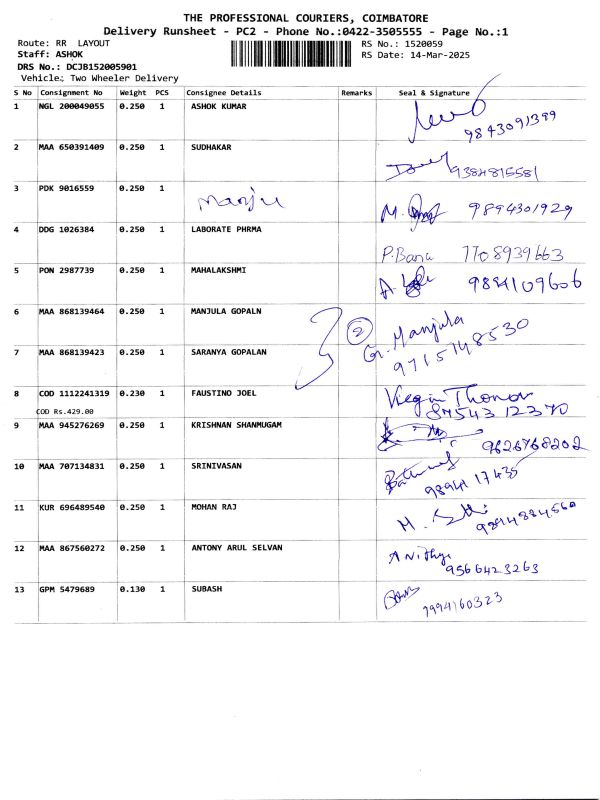 THE PROFESSIONAL COURIERS, COIMBATORE
Delivery Runsheet - PC2 - Phone No.:0422-3505555 - Page No.:1
Route: RR LAYOUT RS No.: 1520059
Staff: ASHOK RS Date: 14-Mar-2025
DRS No.: DCJB152005901
Vehicle: Two Wheeler Delivery
S No Consignment No Weight PCS Consignee Details Remarks Seal & Signature
1 NGL 200049055 0.250 1 ASHOK KUMAR
9843091399
2 MAA 650391409 0.250 1 SUDHAKAR
9384815581
3 PDK 9016559 0.250 1 Manju
M. 9894301929
4 DDG 1026384 0.250 1 LABORATE PHRMA
P.Banu 7708939663
5 PON 2987739 0.250 1 MAHALAKSHMI
A. 9884109606
6 MAA 868139464 0.250 1 MANJULA GOPALN
2 G. Manjula
9715748530
7 MAA 868139423 0.250 1 SARANYA GOPALAN
8 COD 1112241319 0.230 1 FAUSTINO JOEL
COD Rs.429.00 87543 12370
9 MAA 945276269 0.250 1 KRISHNAN SHANMUGAM
9626768202
10 MAA 707134831 0.250 1 SRINIVASAN
98941 17435
11 KUR 696489540 0.250 1 MOHAN RAJ
M.
12 MAA 867560272 0.250 1 ANTONY ARUL SELVAN
A Nithya
9566423263
13 GPM 5479689 0.130 1 SUBASH
7994160323